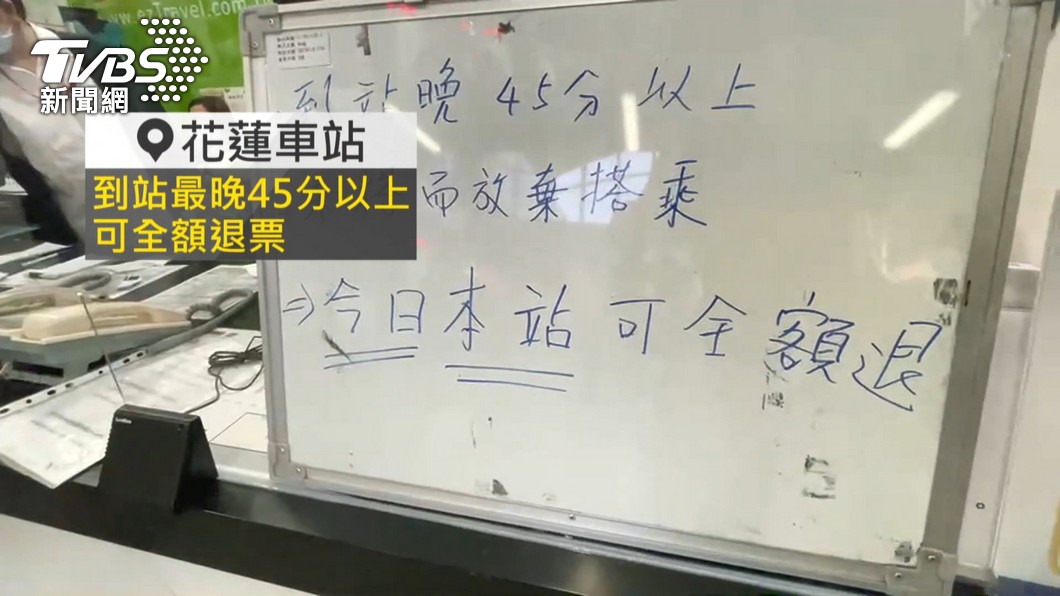 www.ezTravel.com.tw
TVBS
新聞網
花蓮車站
到站最晚45分以上
可全額退票
到站晚45分以上
而放棄搭乘
⇒今日本站可全額退